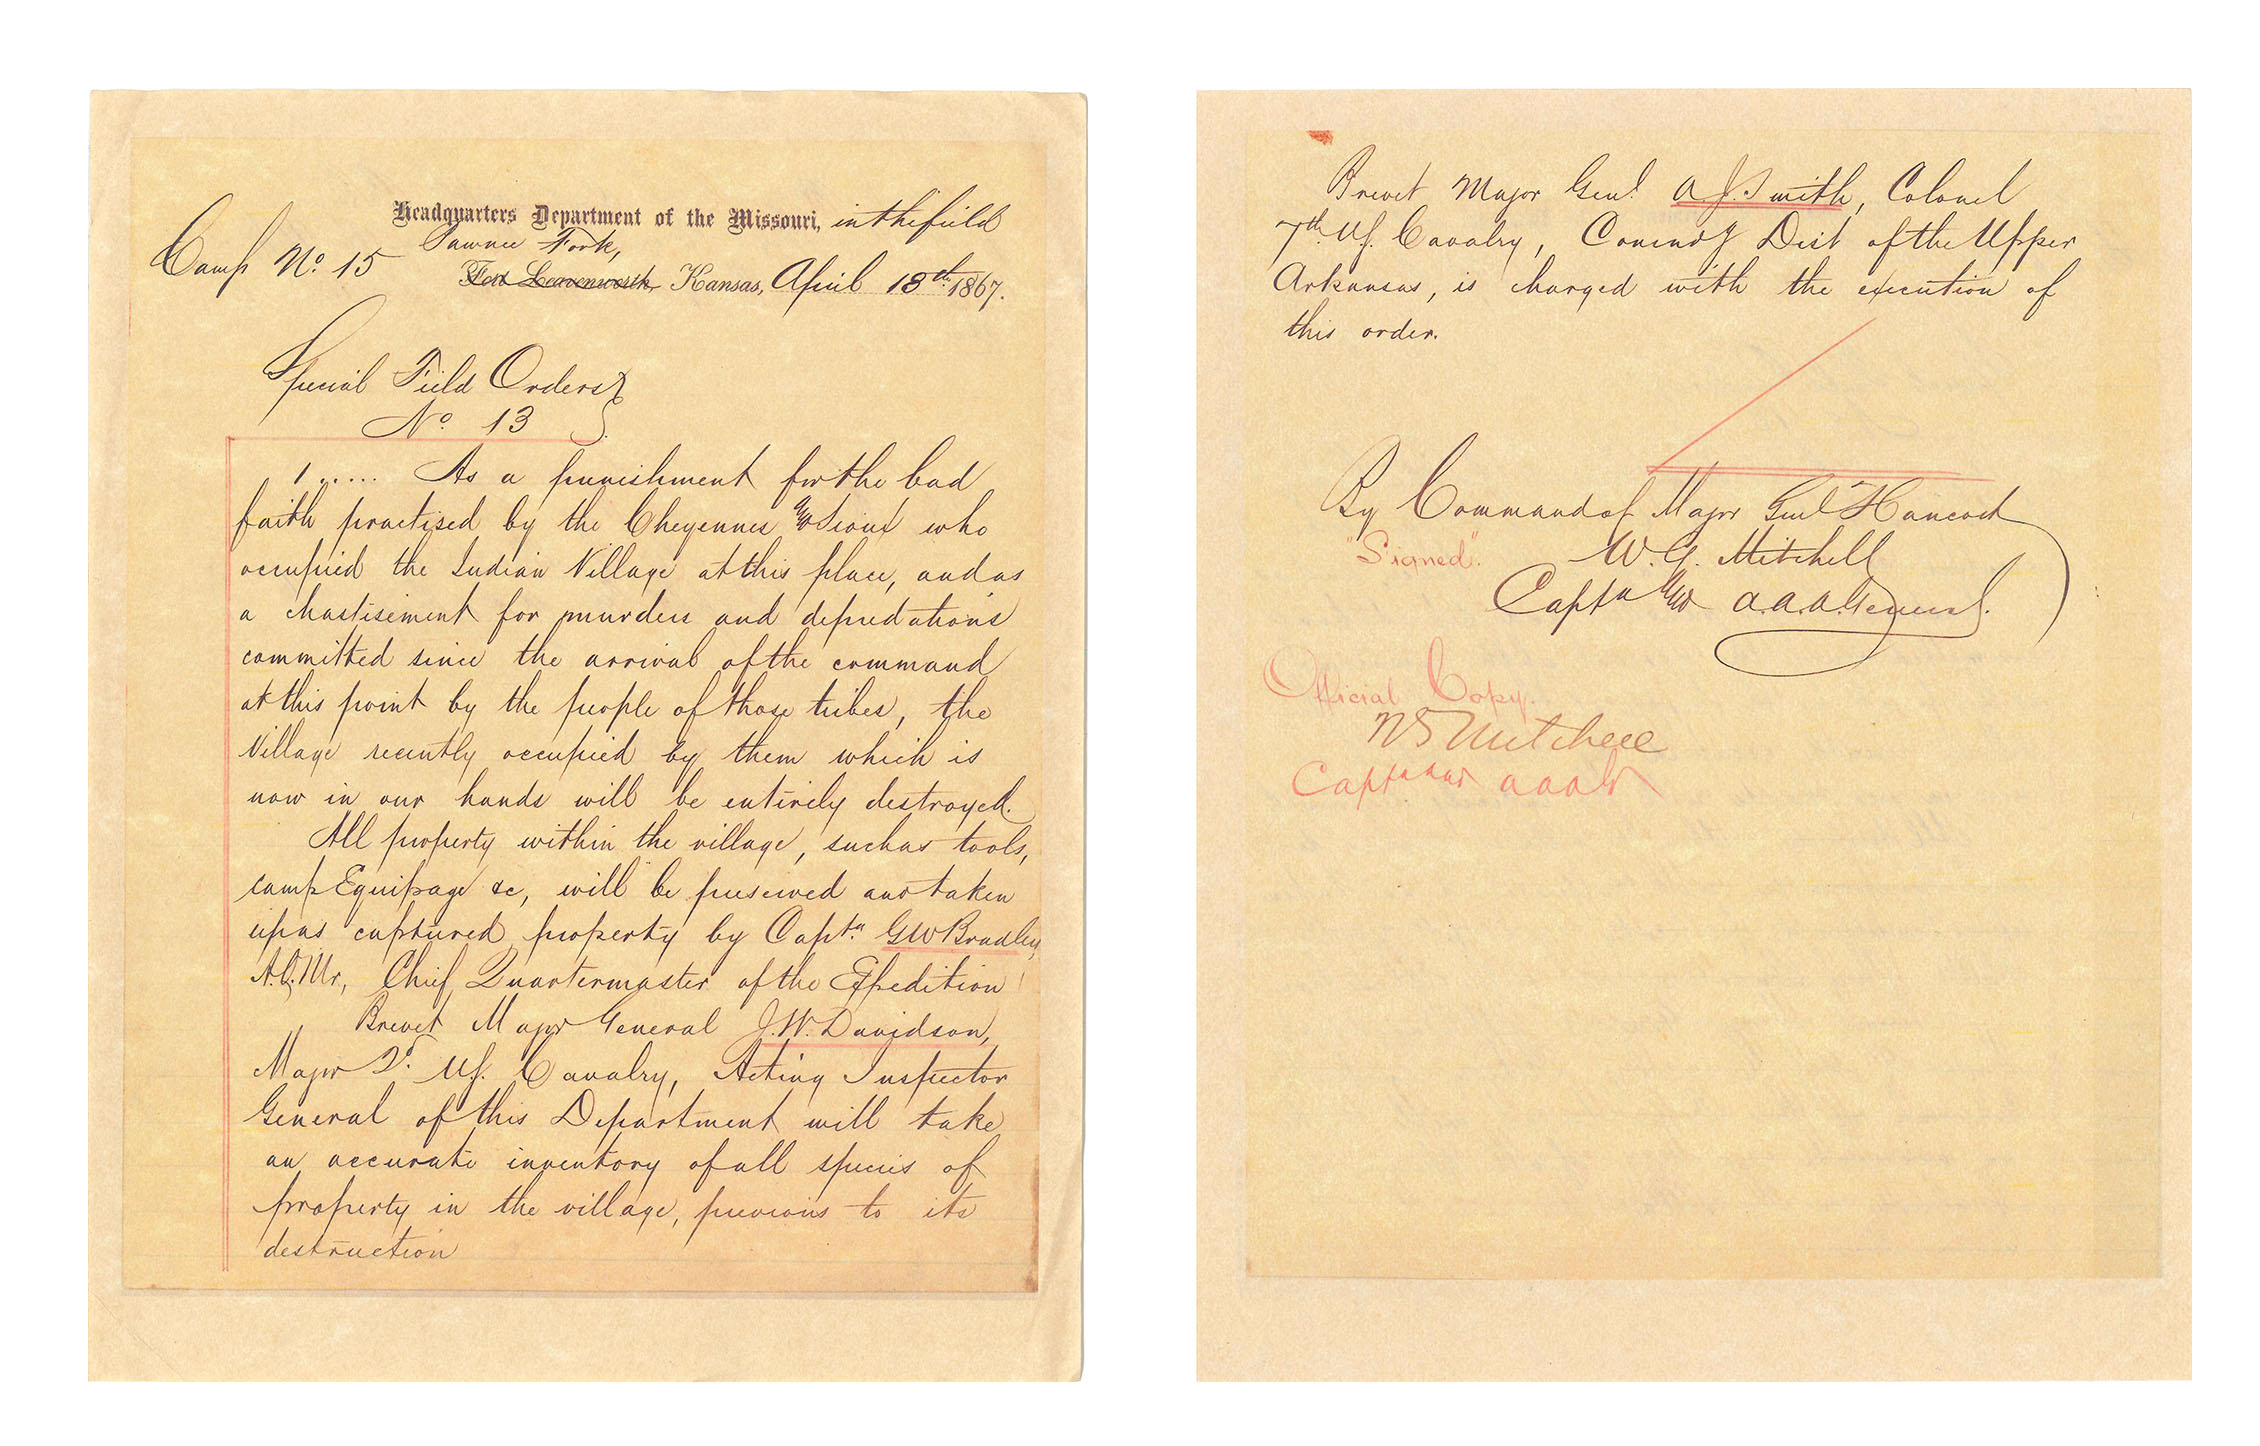 Headquarters Department of the Missouri, in the field
Camp No. 15 Pawnee Fork,
Fort Leavenworth, Kansas, April 18th 1867.
Special Field Orders
No. 13
1..... As a punishment for the bad
faith practised by the Cheyennes and Sioux who
occupied the Indian Village at this place, and as
a chastisement for murders and depredations
committed since the arrival of the command
at this point by the people of those tribes, the
Village recently occupied by them which is
now in our hands will be entirely destroyed.
All property within the village, such as tools,
camp Equipage &c, will be preserved and taken
up as captured property by Capta. GW Bradley,
A.Q.Mr, Chief Quartermaster of the Expedition
Brevet Major General J.W. Davidson,
Major 2d. US. Cavalry, Acting Inspector
General of this Department will take
an accurate inventory of all species of
property in the village, previous to its
destruction
Brevet Major Genl. A J. Smith, Colonel
7th. US. Cavalry, Comndg Dist of the Upper
Arkansas, is charged with the execution of
this order.
By Command of Major Genl Hancock
"Signed". W. G. Mitchell
Capta and A.A.A. General.
Official Copy.
W G Mitchell
Capta and AAAG